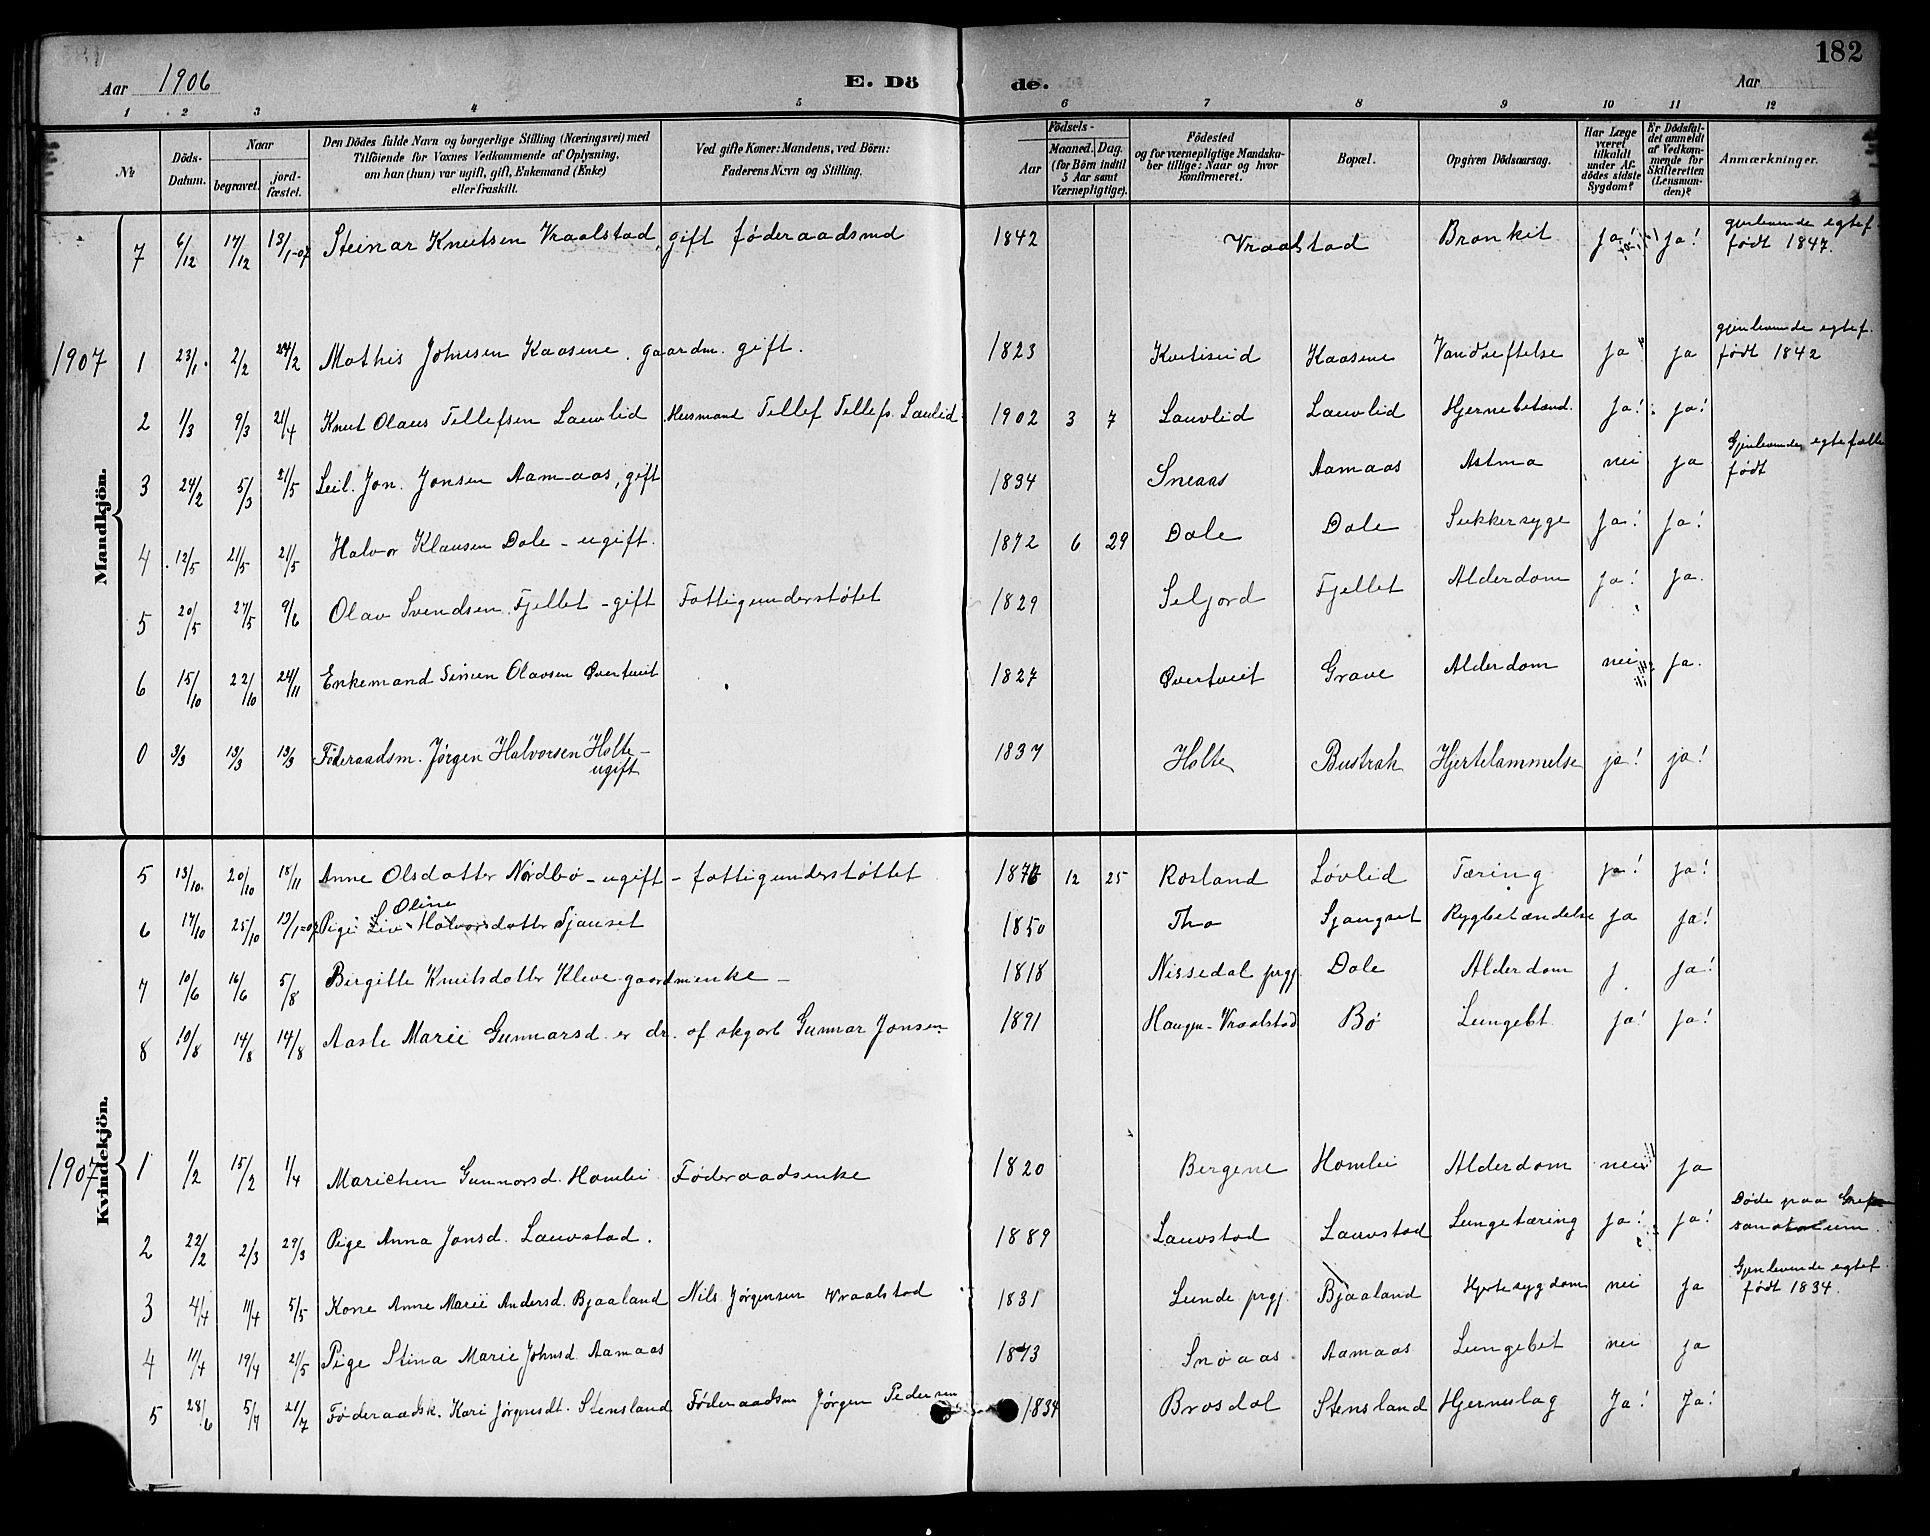 182
Aar 1906 E. Döde. Aar
1 2 3 4 5 6 7 8 9 10 11 12
№
Döds-Datum.
Naar
begravet.
jord-fæstet.
Den Dödes fulde Navn og borgerlige Stilling (Næringsvei) med
Tilföiende for Voxnes Vedkommende af Oplysning,
om han (hun) var ugift, gift, Enkemand (Enke)
eller fraskilt.
Ved gifte Koner: Mandens, ved Börn:
Faderens Navn og Stilling.
Födsels-
Aar
Maaned. Dag.
(for Börn indtil
5 Aar samt
Værnepligtige).
Födested
og for værnepligtige Mandska-
ber tillige: Naar og hvor
konfirmeret.
Bopæl.
Opgiven Dödsaarsag.
Har Læge
været
tilkaldt
under Af-
dödes sidste
Sygdom?
Er Dödsfal-
det anmeldt
af Vedkom-
mende for
Skifteretten
(Lensman-
den)?
Anmærkninger.
Mandkjön.
7 6/12 17/12 13/1-07 Steinar Knutsen Vraalstad, gift føderaadsmd 1842 Vraalstad Bronkit ja! ja! gjenlevende egtef. født 1847.
1907
1 23/1. 2/2 24/2 Mathis Johnsen Kaasene, gaardm. gift. 1823 Kvitiseid Kaasene Vandseftelse ja ja gjenlevende egtef. født 1842
2 1/3 9/3 21/4 Knut Olaus Tellefsen Lauvlid Husmand Tellef Tellefs. Lauvlid 1902 3 7 Lauvlid Lauvlid Hjernebetænd. ja! ja!
3 24/2 5/3 21/5 Leil. Jon Jonsen Aamaas, gift 1834 Sneaas Aamaas Astma nei ja Gjenlevende egtefælle født
4 12/5 21/5 21/5 Halvor Klausen Dale - ugift. 1872 6 29 Dale Dale Sukkersyge ja! ja!
5 20/5 27/5 9/6 Olav Svendsen Fjellet - gift Fattigunderstøtet 1829 Seljord Fjellet Alderdom ja! ja.
6 15/10 22/10 24/11 Enkemand Simen Olavsen Øvertveit 1827 Øvertveit Grave Alderdom nei ja.
0 3/3 13/3 13/3 Føderaadsm. Jørgen Halvorsen Holte - ugift 1837 Holte Bustrak Hjertelammelse ja! ja!
Kvindekjön.
5 13/10. 20/10 18/11 Anne Olsdatter Nordbø - ugift - fattigunderstøttet 1876 12 25 Rosland Løvlid Tæring ja! ja!
6 17/10 25/10 13/1-07 Pige Liv Oline Halvorsdatter Sjauset 1850 Tho Sjangset Rygbetændelse ja ja!
7 10/6 16/6 5/8 Birgitte Knutsdatter Kleve gaardmenke - 1818 Nissedal prgj. Dale Alderdom j ja!
8 10/8 14/8 14/8 Aasle Marie Gunnarsd. er dr. af skgarb Gunnar Jonsen 1891 Haugen-Vraalstad Bø Lungebt. ja! ja!
1907
1 1/2 15/2 1/4 Marichen Gunnarsd. Homlei Føderaadsenke 1820 Bergene Homlei Alderdom nei ja
2 22/2 2/3 29/3 Pige Anna Jonsd. Lauvstad. 1889 Lauvstad Lauvstad Lungetæring ja! ja! Døde paa sanatorium.
3 4/4 11/4 5/5 Kone Anne Marie Andersd. Bjaaland Nils Jørgensen Vraalstad 1831 Lunde prgj. Bjaaland Hjertesygdom nei ja Gjenlevende egtef. født 1834.
4 11/4 19/4 21/5 Pige Stina Marie Johnsd. Aamaas 1873 Snøaas Aamaas Lungebet nei ja
5 28/6 5/7 21/7 Føderaadsk. Kari Jørgensdt. Stensland Føderaadsm Jørgen Pedersen 1834 Brosdal Stensland Hjerneslag Ja! Ja!